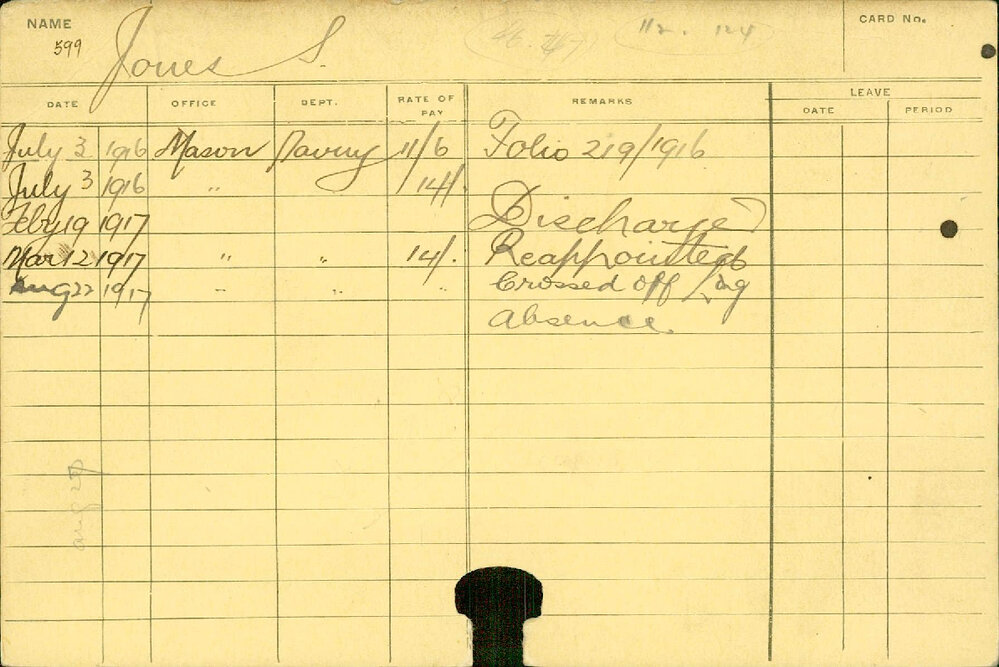 NAME CARD No.
599 Jones S. 112. 124
DATE OFFICE DEPT. RATE OF PAY REMARKS LEAVE
DATE PERIOD
July 3 1916 Mason 11/6 Folio 219/1916
July 3 1916 " 14/.
Feby 19 1917 Discharged
Mar 12 1917 " " 14/. Reappointed
Aug 22 1917 " " " Crossed off Lng
Absence.